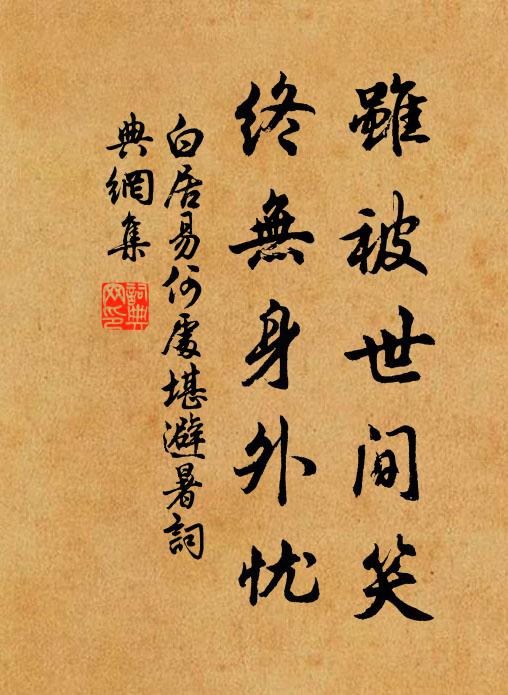 雖被世间笑
終無身外忧
白居易何處堪避暑詞
典網集
詞典網印